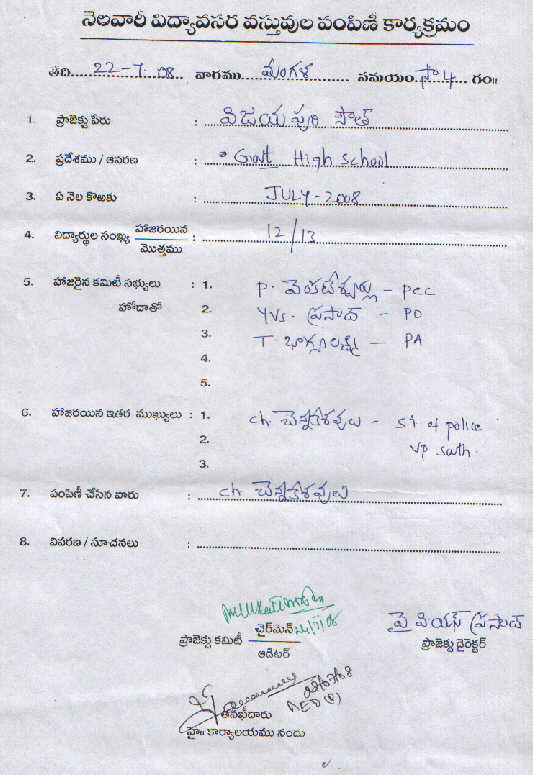 నెలవారీ విద్యావసర వస్తువుల పంపిణీ కార్యక్రమం
తేది 22-7-08 వారము మంగళ సమయం సా 4 గం॥
1. ప్రాజెక్టు పేరు : విజయపురి సౌత్
2. ప్రదేశము / ఆవరణ : Govt High School
3. ఏ నెల కొఱకు : JULY-2008
4. విద్యార్థుల సంఖ్య హాజరయిన / మొత్తము : 12/13
5. హాజరైన కమిటీ సభ్యులు : 1. P. వెంకటేశ్వర్లు - PCC
హోదాతో 2. YVS. ప్రసాద్ - PD
3. T భాగ్యలక్ష్మి - PA
4.
5.
6. హాజరయిన ఇతర ముఖ్యులు : 1. Ch చెన్నకేశవులు - SI of police
2. VP South.
3.
7. పంపిణీ చేసిన వారు : Ch చెన్నకేశవులు
8. వివరణ / సూచనలు :
ప్రాజెక్టు కమిటీ ఛైర్మెన్
ఆడిటర్
వై వియస్ ప్రసాద్
ప్రాజెక్టు డైరెక్టర్
తనిఖీదారు
హై॥ కార్యాలయము నందు